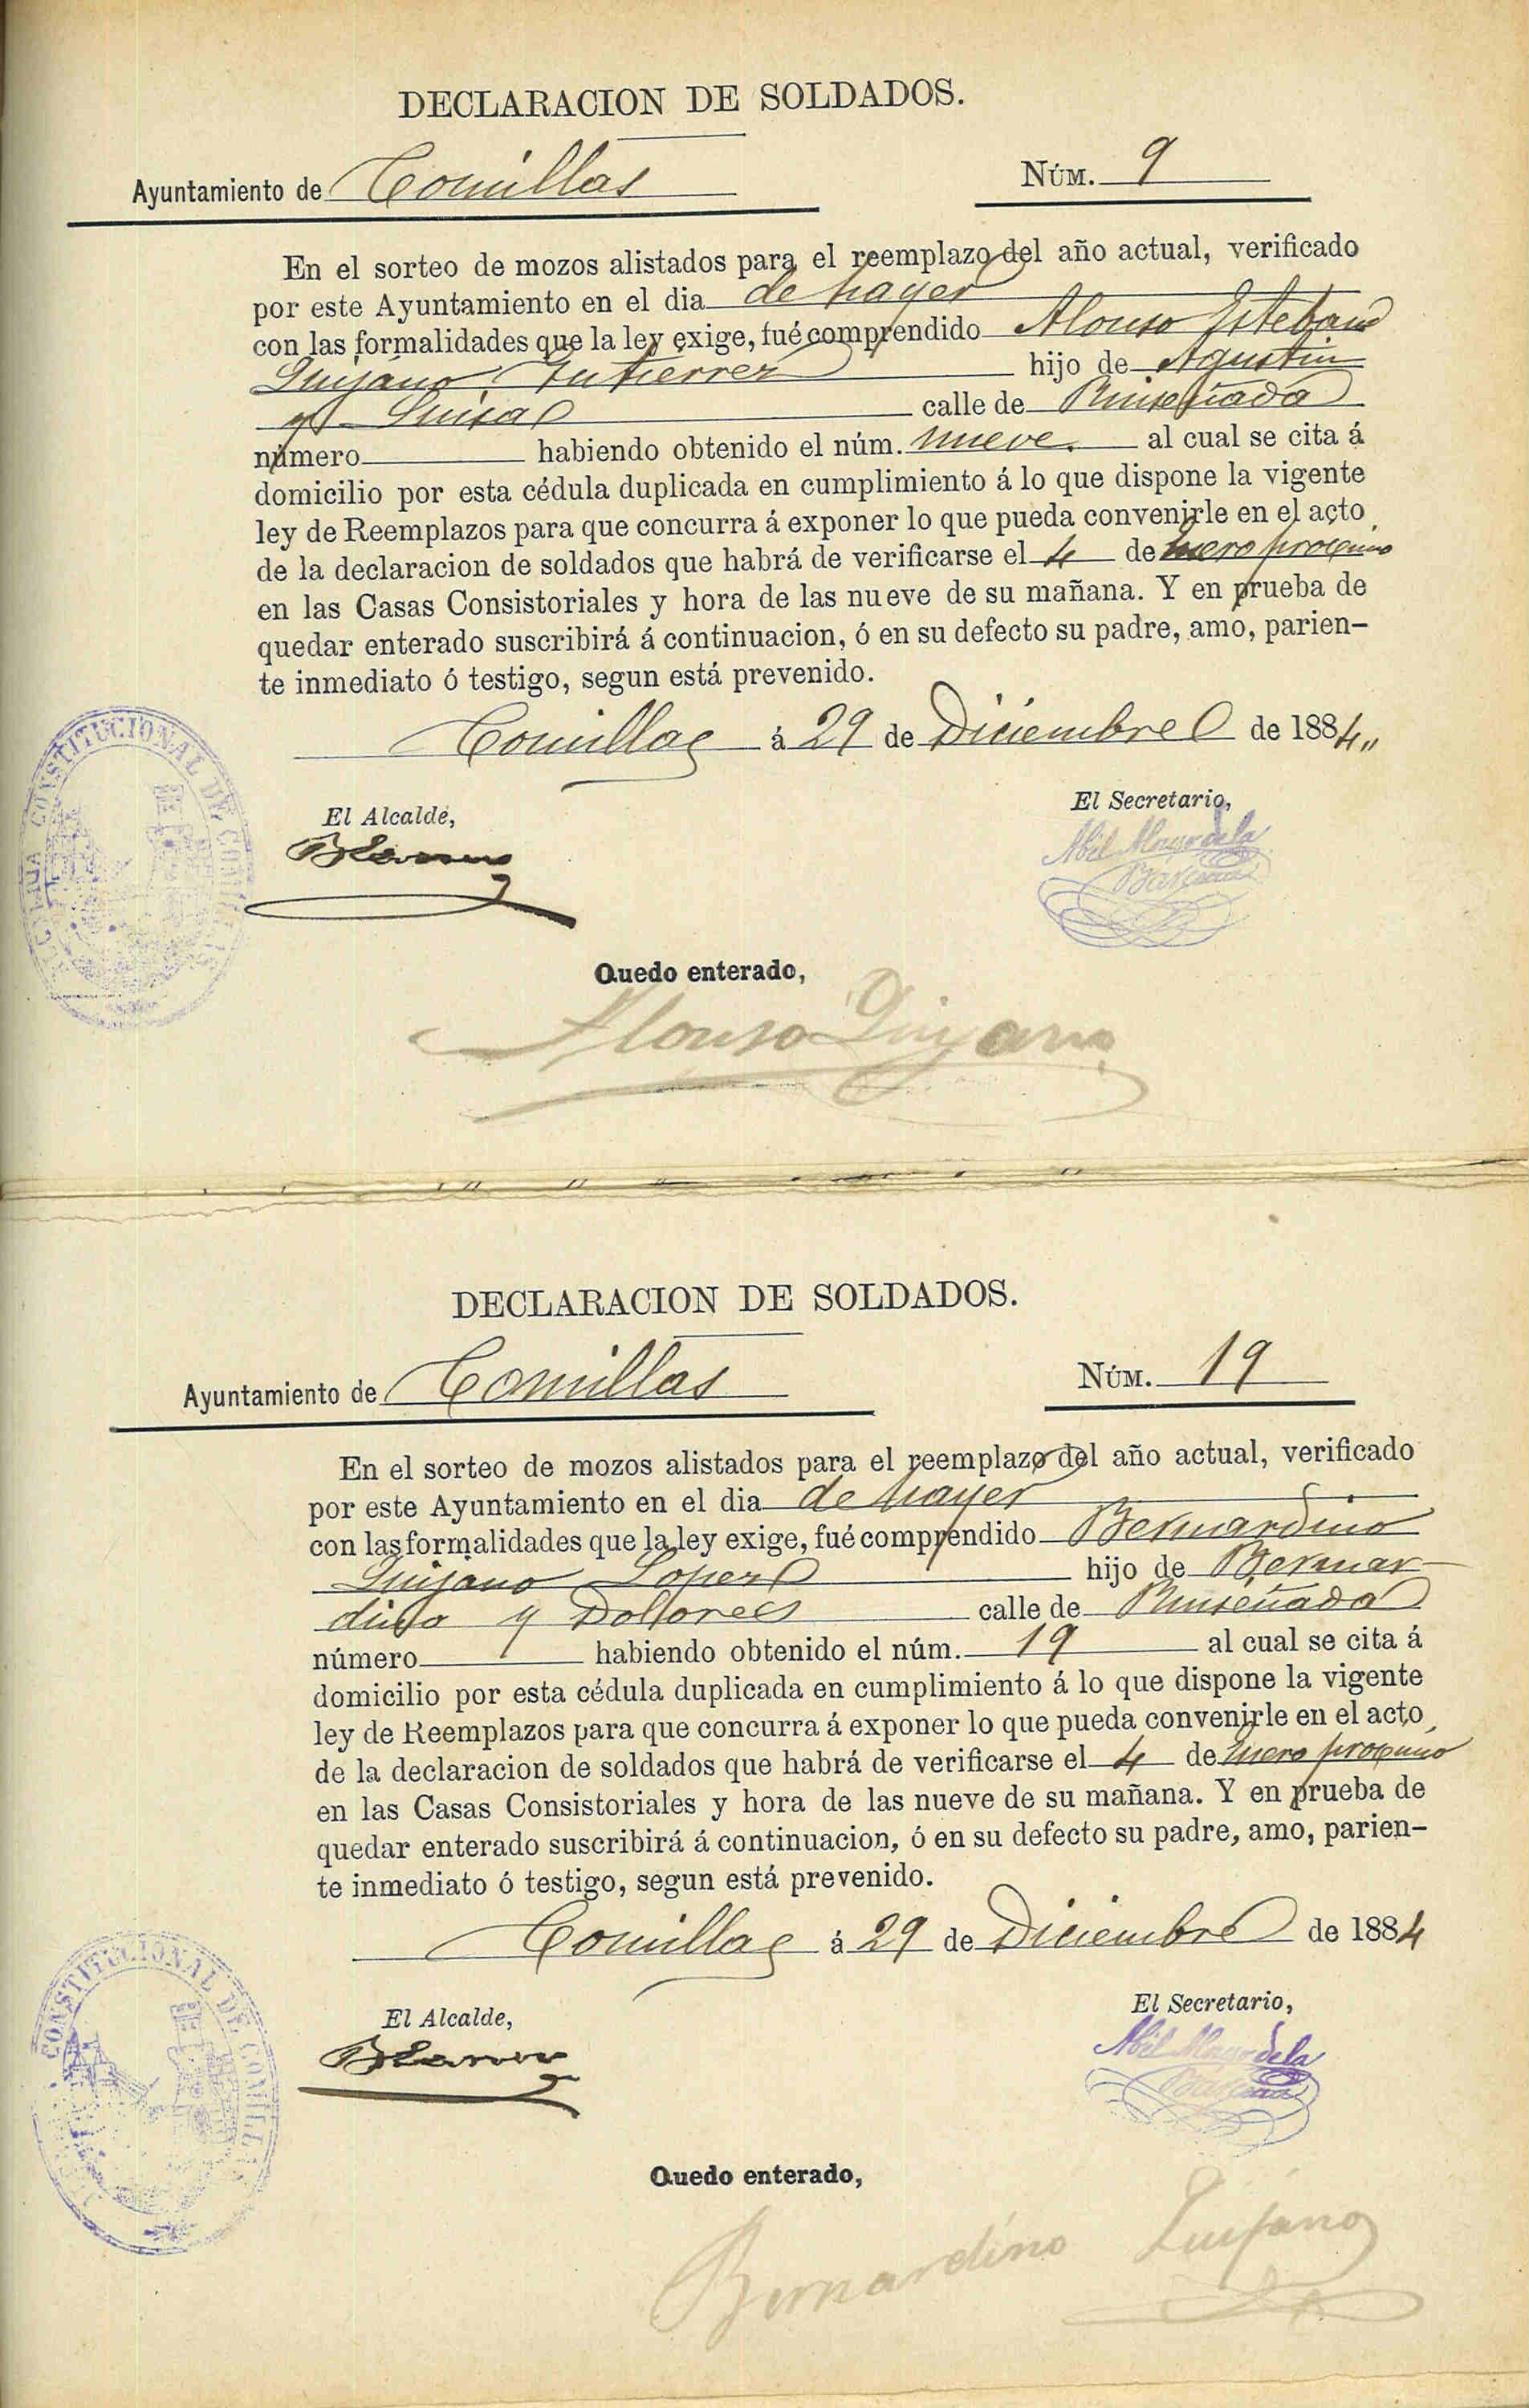 DECLARACION DE SOLDADOS.
Ayuntamiento de Comillas NÚM. 9
En el sorteo de mozos alistados para el reemplazo del año actual, verificado
por este Ayuntamiento en el dia de hayer
con las formalidades que la ley exige, fué comprendido Alonso Esteban
Quijano Gutierrez hijo de Agustin
y Luisa calle de Ruiseñada
número habiendo obtenido el núm. nueve. al cual se cita á
domicilio por esta cédula duplicada en cumplimiento á lo que dispone la vigente
ley de Reemplazos para que concurra á exponer lo que pueda convenirle en el acto
de la declaracion de soldados que habrá de verificarse el 4 de Enero proximo
en las Casas Consistoriales y hora de las nueve de su mañana. Y en prueba de
quedar enterado suscribirá á continuacion, ó en su defecto su padre, amo, parien-
te inmediato ó testigo, segun está prevenido.
Comillas á 29 de Diciembre de 1884
El Alcalde, El Secretario,
Blanco Abel Mayor de la
Bárcena
CONSTITUCIONAL DE COMILLAS
Quedo enterado,
Alonso Quijano
DECLARACION DE SOLDADOS.
Ayuntamiento de Comillas NÚM. 19
En el sorteo de mozos alistados para el reemplazo del año actual, verificado
por este Ayuntamiento en el dia de hayer
con las formalidades que la ley exige, fué comprendido Bernardino
Quijano Lopez hijo de Bernar-
dino y Dolores calle de Ruiseñada
número habiendo obtenido el núm. 19 al cual se cita á
domicilio por esta cédula duplicada en cumplimiento á lo que dispone la vigente
ley de Reemplazos para que concurra á exponer lo que pueda convenirle en el acto
de la declaracion de soldados que habrá de verificarse el 4 de Enero proximo
en las Casas Consistoriales y hora de las nueve de su mañana. Y en prueba de
quedar enterado suscribirá á continuacion, ó en su defecto su padre, amo, parien-
te inmediato ó testigo, segun está prevenido.
Comillas á 29 de Diciembre de 1884
El Alcalde, El Secretario,
Blanco Abel Mayor de la
Bárcena
CONSTITUCIONAL DE COMILL
Quedo enterado,
Bernardino Quijano